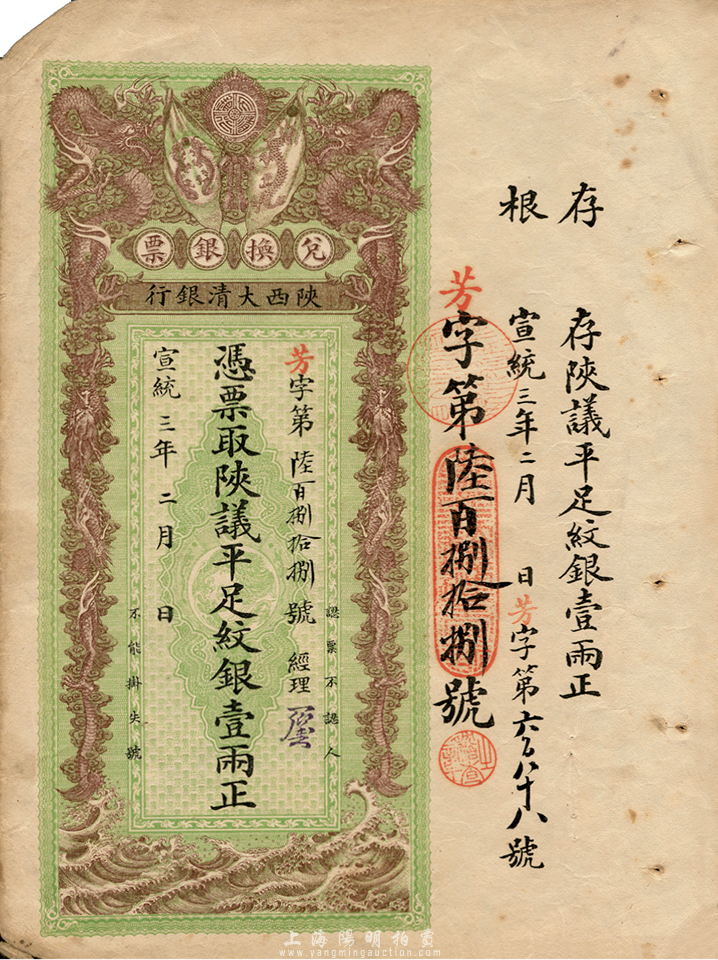 存根
存陝議平足紋銀壹兩正
宣統三年二月 日芳字第六百八十八號
芳字第陸百捌拾捌號
兌換銀票
陝西大清銀行
認票不認人
芳字第陸百捌拾捌號 經理
憑票取陝議平足紋銀壹兩正
宣統三年二月 日
不能掛失號
上海陽明拍賣
www.yangmingauction.com